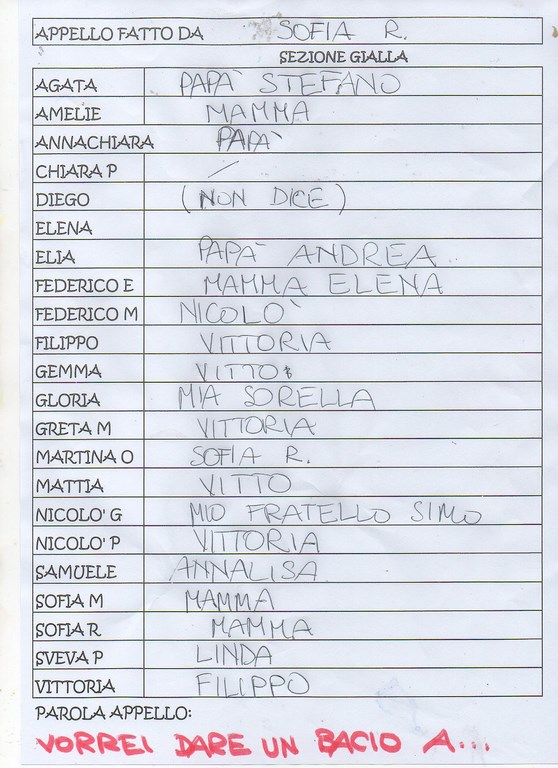 APPELLO FATTO DA SOFIA R.
SEZIONE GIALLA
AGATA PAPA' STEFANO
AMELIE MAMMA
ANNACHIARA PAPA'
CHIARA P /
DIEGO (NON DICE)
ELENA
ELIA PAPA' ANDREA..
FEDERICO E MAMMA ELENA
FEDERICO M NICOLO'
FILIPPO VITTORIA
GEMMA VITTO
GLORIA MIA SORELLA
GRETA M VITTORIA
MARTINA O SOFIA R.
MATTIA VITTO
NICOLO' G MIO FRATELLO SIMO
NICOLO' P VITTORIA
SAMUELE ANNALISA
SOFIA M MAMMA
SOFIA R MAMMA
SVEVA P LINDA
VITTORIA FILIPPO
PAROLA APPELLO:
VORREI DARE UN BACIO A...